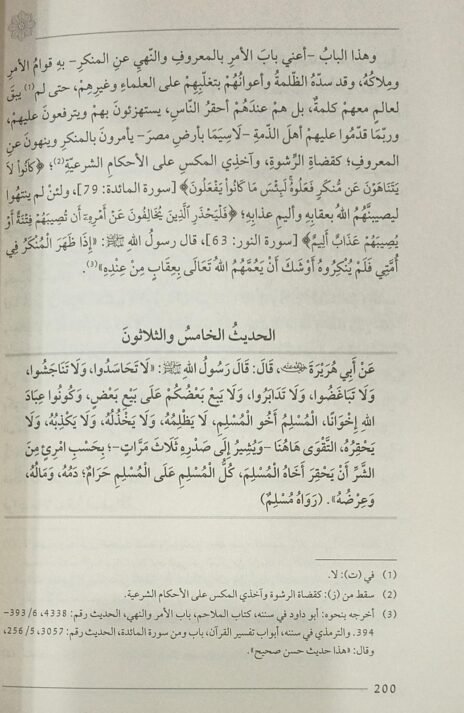 وهذا البابُ -أعني بابَ الأمرِ بالمعروفِ والنَّهيِ عنِ المنكرِ- بهِ قوامُ الأمرِ
وملاكُهُ، وقد سدَّهُ الظَّلمةُ وأعوانُهُمْ بتغلُّبِهِمْ على العلماءِ وغيرِهِمْ، حتى لم(1) يبقَ
لعالمٍ معهمْ كلمةٌ، بل هم عندَهُمْ أحقرُ النَّاسِ، يستهزئونَ بهمْ ويترفعونَ عليهِمْ،
وربَّما قدَّموا عليهِمْ أهلَ الذمَّةِ -لاسيَما بأرضِ مصرَ- يأمرونَ بالمنكرِ وينهونَ عنِ
المعروفِ؛ كقضاةِ الرِّشوةِ، وآخذِي المكسِ على الأحكامِ الشرعيَّةِ(2)؛ ﴿كَانُواْ لَا
يَتَنَاهَوْنَ عَن مُّنكَرٍ فَعَلُوهُ لَبِئْسَ مَا كَانُواْ يَفْعَلُونَ﴾ [سورة المائدة: 79]، ولئنْ لم ينتهُوا
ليصيبنَّهُمُ اللهُ بعقابِهِ وأليمِ عذابِهِ؛ ﴿فَلْيَحْذَرِ الَّذِينَ يُخَالِفُونَ عَنْ أَمْرِهِ أَن تُصِيبَهُمْ فِتْنَةٌ أَوْ
يُصِيبَهُمْ عَذَابٌ أَلِيمٌ﴾ [سورة النور: 63]، قال رسول اللهِ ﷺ: «إِذَا ظَهَرَ الْمُنْكَرُ فِي
أُمَّتِي فَلَمْ يُنْكِرُوهُ أَوْشَكَ أَنْ يَعُمَّهُمُ اللهُ تَعَالَى بِعِقَابٍ مِنْ عِنْدِهِ»(3).
الحديثُ الخامسُ والثلاثونَ
عَنْ أَبِي هُرَيْرَةَ ﷺ، قَالَ: قَالَ رَسُولُ اللهِ ﷺ: «لَا تَحَاسَدُوا، وَلَا تَنَاجَشُوا،
وَلَا تَبَاغَضُوا، وَلَا تَدَابَرُوا، وَلَا يَبِعْ بَعْضُكُمْ عَلَى بَيْعِ بَعْضٍ، وَكُونُوا عِبَادَ
اللهِ إِخْوَانًا، الْمُسْلِمُ أَخُو الْمُسْلِمِ، لَا يَظْلِمُهُ، وَلَا يَخْذُلُهُ، وَلَا يَكْذِبُهُ، وَلَا
يَحْقِرُهُ، التَّقْوَى هَاهُنَا -وَيُشِيرُ إِلَى صَدْرِهِ ثَلَاثَ مَرَّاتٍ-؛ بِحَسْبِ امْرِئٍ مِنَ
الشَّرِّ أَنْ يَحْقِرَ أَخَاهُ الْمُسْلِمَ، كُلُّ الْمُسْلِمِ عَلَى الْمُسْلِمِ حَرَامٌ؛ دَمُهُ، وَمَالُهُ،
وَعِرْضُهُ». (رَوَاهُ مُسْلِمٌ)
(1) في (ت): لا.
(2) سقط من (ز): كقضاة الرشوة وآخذي المكس على الأحكام الشرعية.
(3) أخرجه بنحوه: أبو داود في سننه، كتاب الملاحم، باب الأمر والنهي، الحديث رقم: 4338، 6/ 393-
394. والترمذي في سننه، أبواب تفسير القرآن، باب ومن سورة المائدة، الحديث رقم: 3057، 5/ 256،
وقال: «هذا حديث حسن صحيح».
200